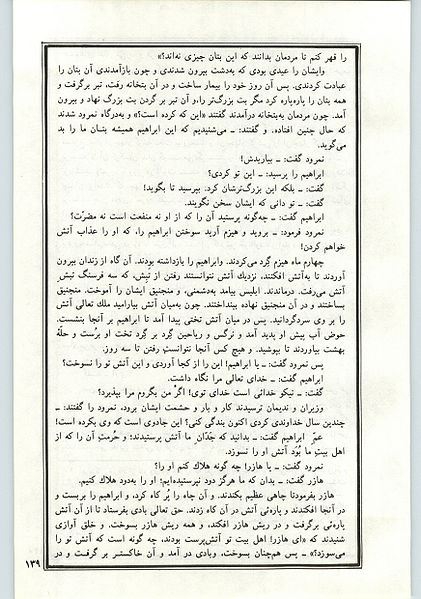 را قهر کنم تا مردمان بدانند که این بتان چیزی نه‌اند؟»
وایشان را عیدی بودی که به‌دشت بیرون شدندی و چون بازآمدندی آن بتان را
عبادت کردندی. پس آن روز خود را بیمار ساخت و در آن بتخانه رفت، تبر برگرفت و
همه بتان را پاره‌پاره کرد مگر بت بزرگ‌تر را، و آن تبر بر گردن بت بزرگ نهاد و بیرون
آمد. چون مردمان به‌بتخانه درآمدند گفتند «این که کرده است؟» و به‌درگاه نمرود شدند
که حال چنین افتاده، و گفتند: ـ می‌شنیدیم که این ابراهیم همیشه بتـان ما را بد
می‌گوید.
نمرود گفت: ـ بیاریدش!
ابراهیم را پرسید: ـ این تو کردی؟
گفت: ـ بلکه این بزرگ‌ترشان کرد. بپرسید تا بگوید!
گفت: ـ تو دانی که ایشان سخن نگویند.
ابراهیم گفت: ـ چه‌گونه پرستید آن را که از او نه منفعت است نه مضرّت؟
نمرود فرمود: ـ بروید و هیزم آرید سوختن ابراهیم را، که او را عذاب آتش
خواهم کردن!
چهارم ماه هیزم گرد می‌کردند. وابراهیم را بازداشته بودند. آن گاه از زندان بیرون
آوردند تا به‌آتش افکنند، نزدیك آتش نتوانستند رفتن از تپش، که سه فرسنگ تپش
آتش می‌رفت. درماندند. ابلیس بیامد به‌دشمنی، و منجنیق ایشان را آموخت. منجنیق
بساختند و در آن منجنیق نهاده بینداختند. چون به‌میان آتش بیارامید ملك تعالی آتش
را بر وی سردگردانید. پس در میان آتش تختی پیدا آمد تا ابراهیم بر آنجا بنشست.
حوض آب پیش او پدید آمد و نرگس و ریاحین گرد بر گرد تخت او برُست و حلّهٔ
بهشت بیاوردند تا بپوشید. و هیچ کس آنجا نتوانست رفتن تا سه روز.
پس نمرود گفت: ـ یا ابراهیم! این را از کجا آوردی و این آتش تو را نسوخت؟
ابراهیم گفت: ـ خدای تعالی مرا نگاه داشت.
گفت: ـ نیکو خدائی است خدای توی! اگر من بگروم مرا بپذیرد؟
وزیران و ندیمان ترسیدند کار و بار و حشمت ایشان برود، نمرود را گفتند: ـ
چندین سال خداوندی کردی اکنون بندگی کنی؟ این جادوی است که وی بکرده است!
عمّ ابراهیم گفت: ـ بدانید که جَدّان ما آتش پرستیدند؛ و حُرمتِ آن را که از
اهل بیتِ ما بُوَد آتش او را نسوزد.
نمرود گفت: ـ یا هازر! چه گونه هلاك کنم او را؟
هازر گفت: ـ بدان که ما هرگز دود نپرستیده‌ایم؛ او را به‌دود هلاك کنیم.
هازر بفرمودتا چاهی عظیم بکندند. و آن چاه را پُر کاه کرد، و ابراهیم را بربست و
در آنجا افکندند و پاره‌ئی آتش در آن کاه زدند. حق تعالی بادی بفرستاد تا از آن آتش
پاره‌ئی برگرفت و در ریش هازر افکند، و همه ریش هازر بسوخت. و خلق آوازی
شنیدند که «ای هازر! اهل بیت تو آتش‌پرست بودند، چه گونه است که آتش تو را
می‌سوزد؟» ـ پس همچنان بسوخت، وبادی در آمد و آن خاکستـر بر گرفـت و در
۱۳۹